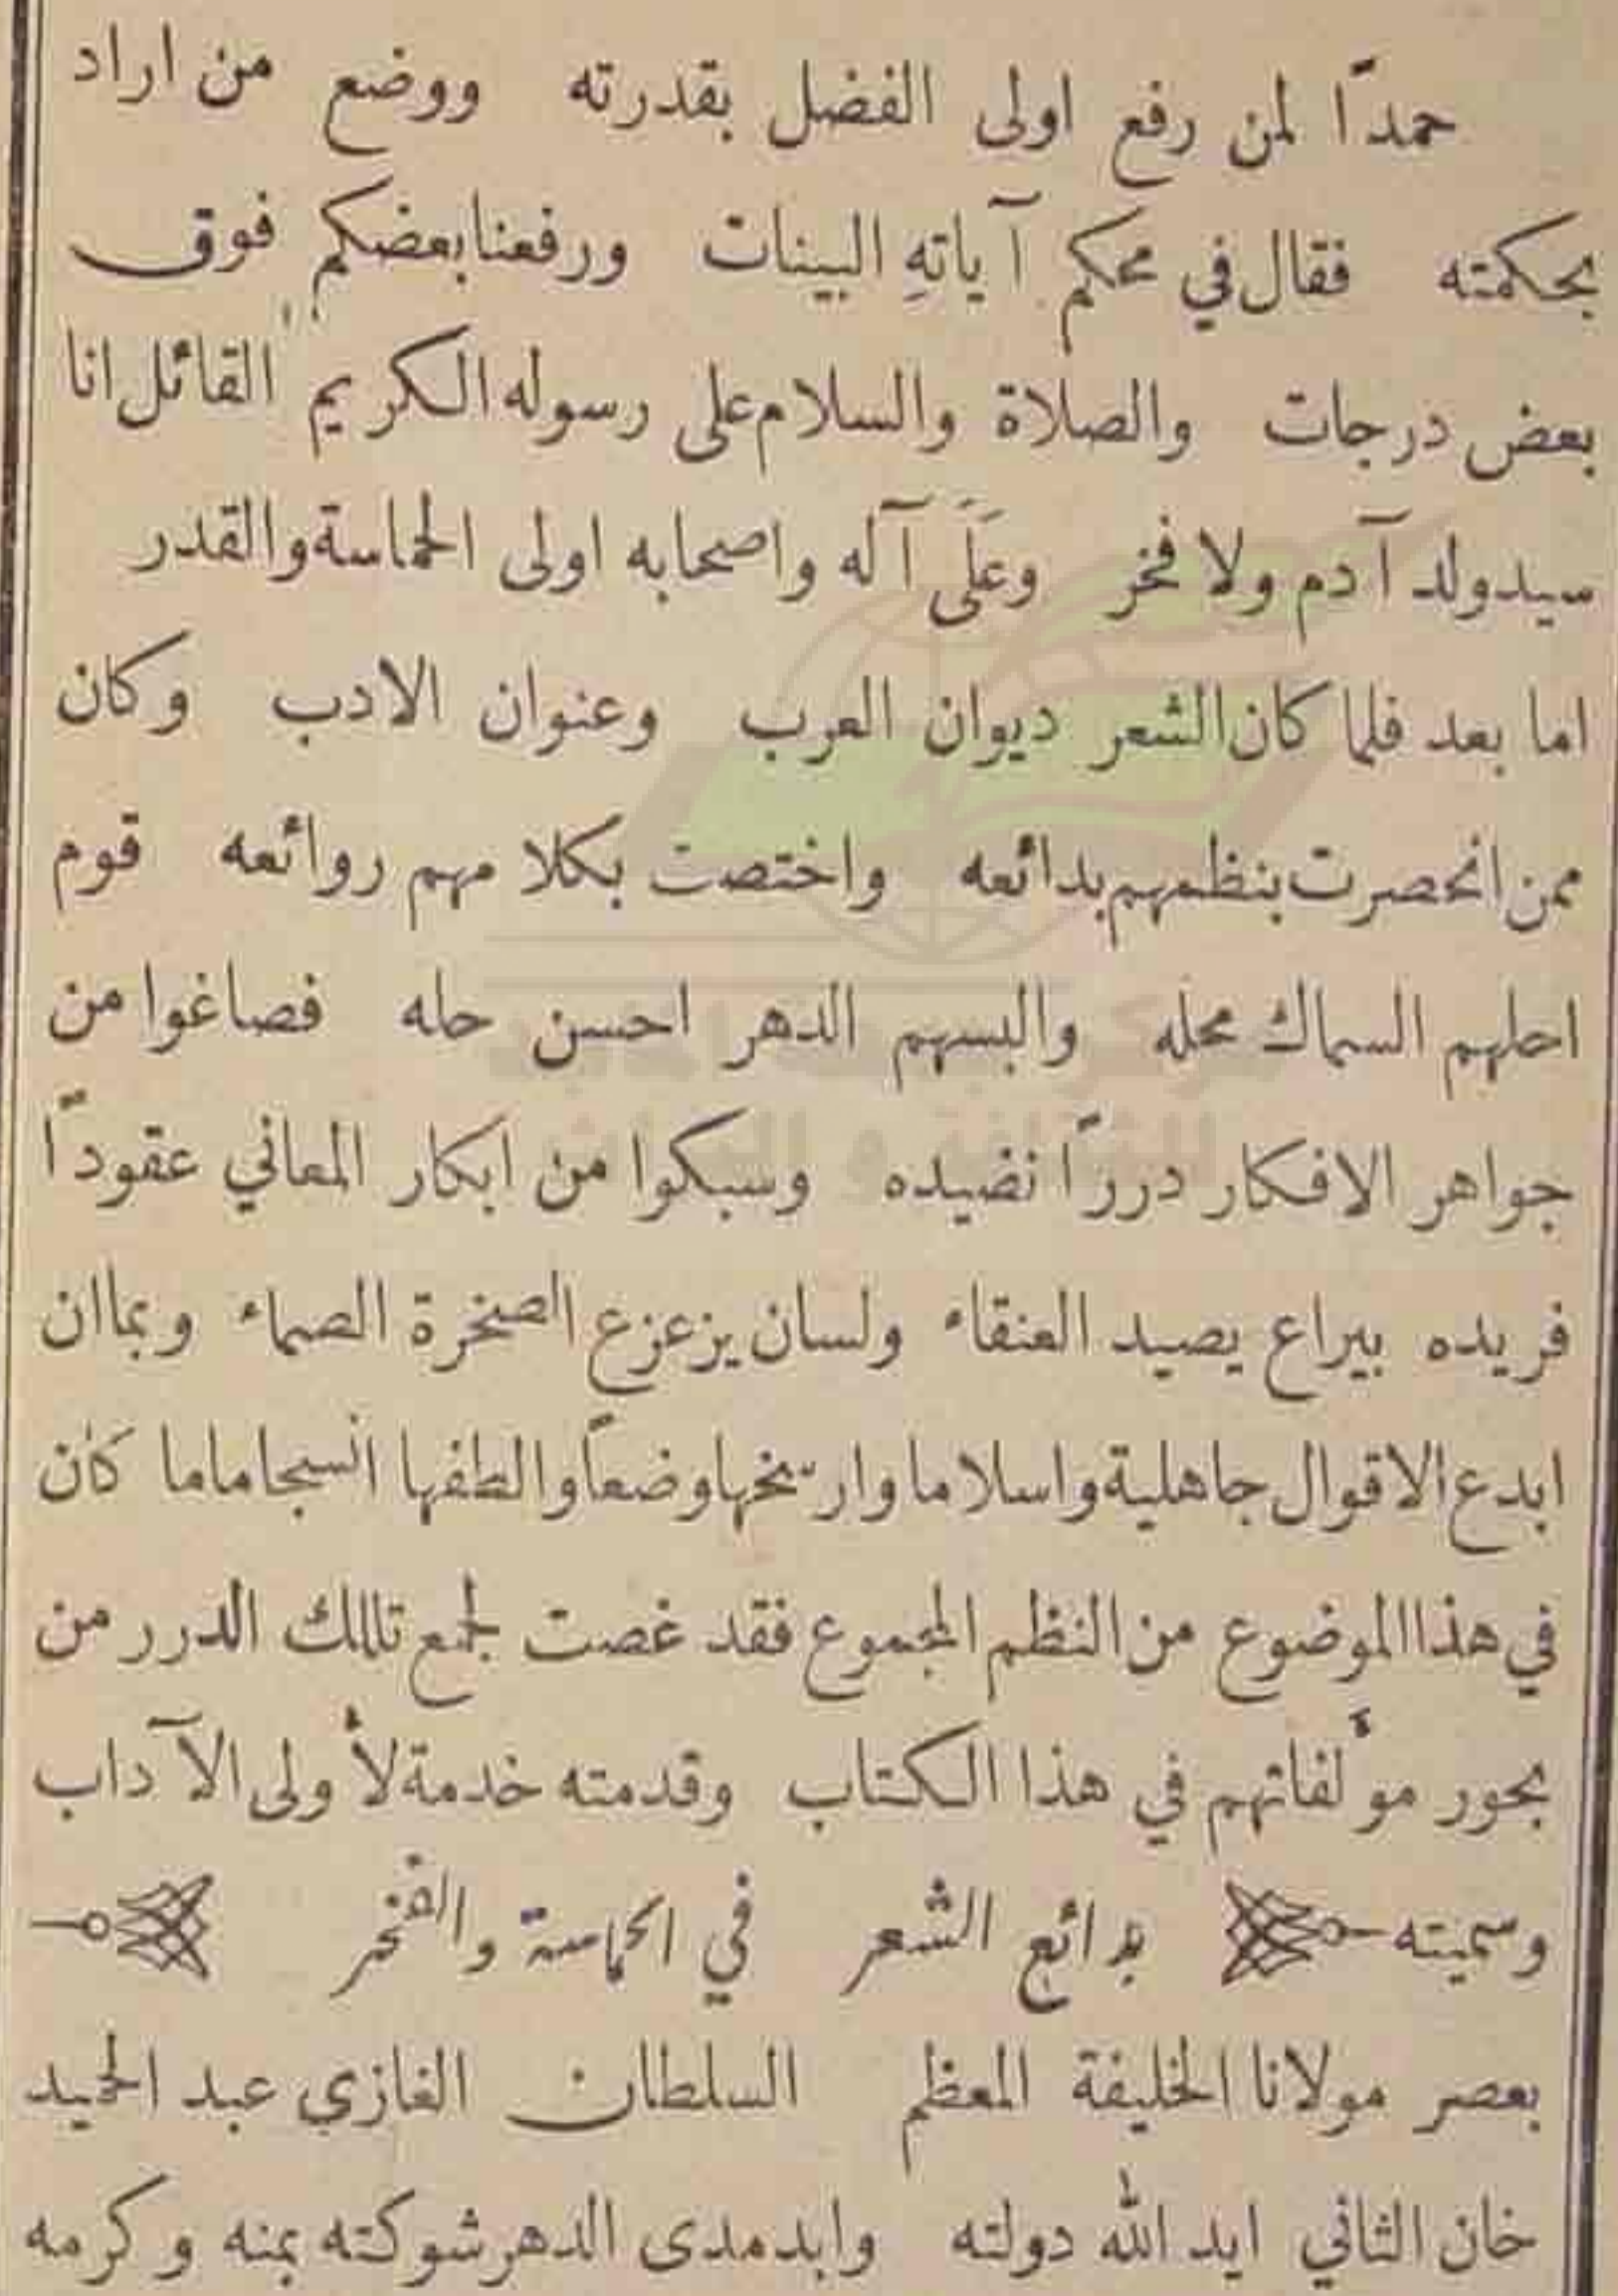 حمدًا لمن رفع اولى الفضل بقدرته ووضع من اراد
بحكمته فقال في محكم آياتهِ البينات ورفعنا بعضكم فوق
بعض درجات والصلاة والسلام على رسوله الكريم القائل انا
سيد ولد آدم ولا فخر وعَلَى آله واصحابه اولى الحماسة والقدر
اما بعد فلما كان الشعر ديوان العرب وعنوان الادب وكان
ممن انحصرت بنظمهم بدائعه واختصت بكلامهم روائعه قوم
احلهم السماك محله والبسهم الدهر احسن حله فصاغوا من
جواهر الافكار دررًا نضيده وسبكوا من ابكار المعاني عقودًا
فريده بيراع يصيد العنقاء ولسان يزعزع الصخرة الصماء وبما ان
ابدع الاقوال جاهلية واسلاما وارسخها وضعًا والطفها انسجاما ما كان
في هذا الموضوع من النظم المجموع فقد غصت لجمع تلك الدرر من
بحور مؤلفاتهم في هذا الكتاب وقدمته خدمة لأولى الآداب
وسميته بدائع الشعر في الحماسة والفخر
بعصر مولانا الخليفة المعظم السلطان الغازي عبد الحميد
خان الثاني ايد الله دولته وابد مدى الدهر شوكته بمنه وكرمه
مركز جمعة الماجد
للثقافة و التراث